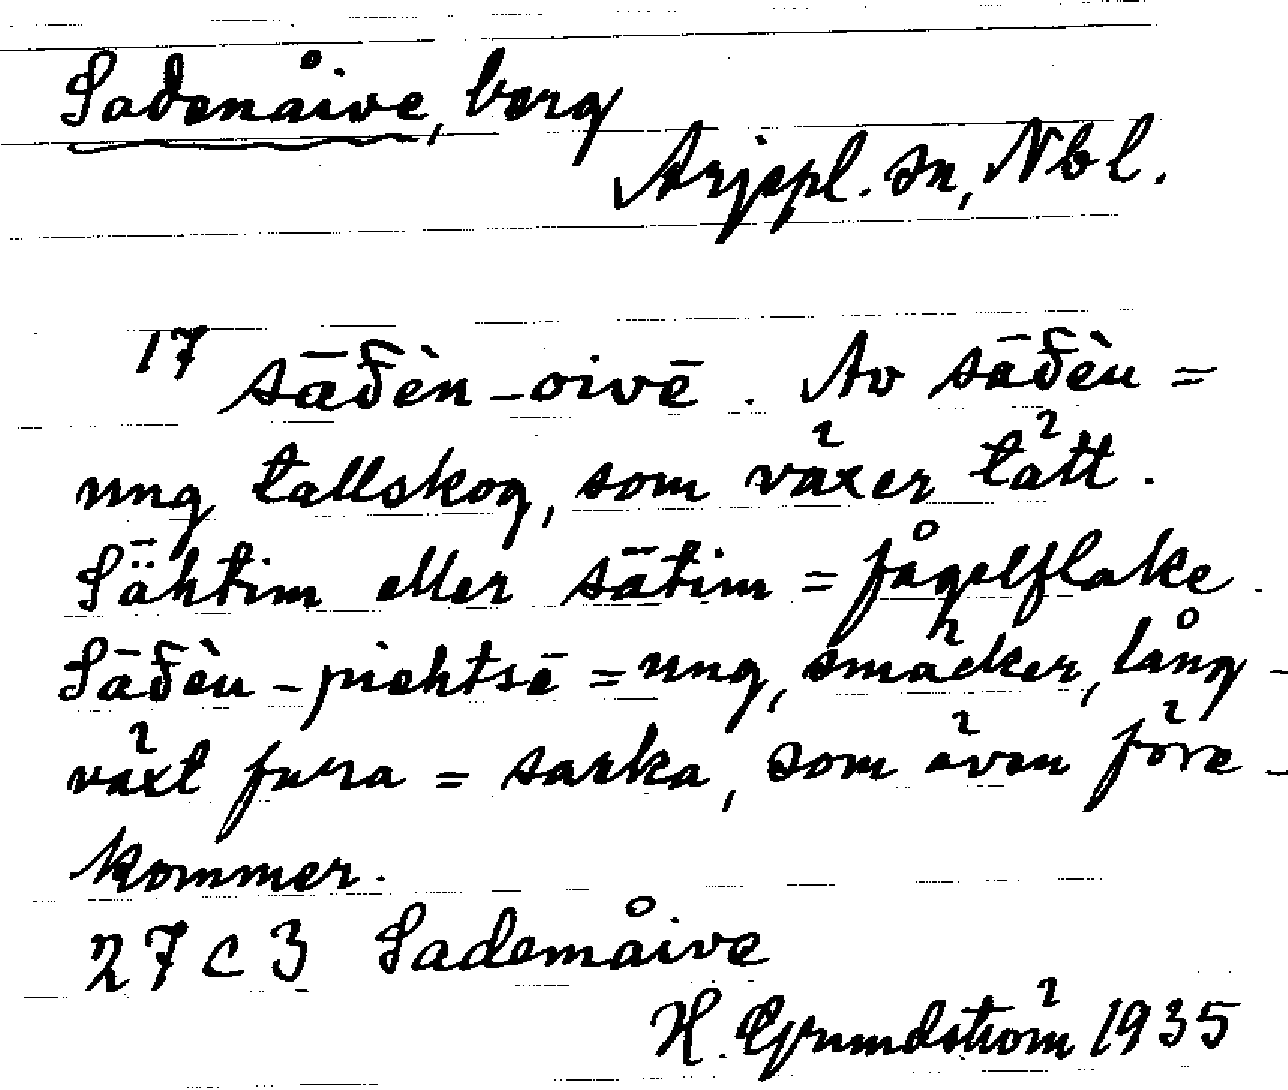 Sadenåive, berg
Arjepl. sn, Nbl.
17 sāđèn-oivē. Av sāđèu =
ung tallskog, som växer tätt.
Sǟhtim eller sātim = fågelflake.
Sāđèu-piehtsē = ung, smäcker, lång-
växt fura = sarka, som även före-
kommer.
27 C 3 Sademåive
H. Grundström 1935